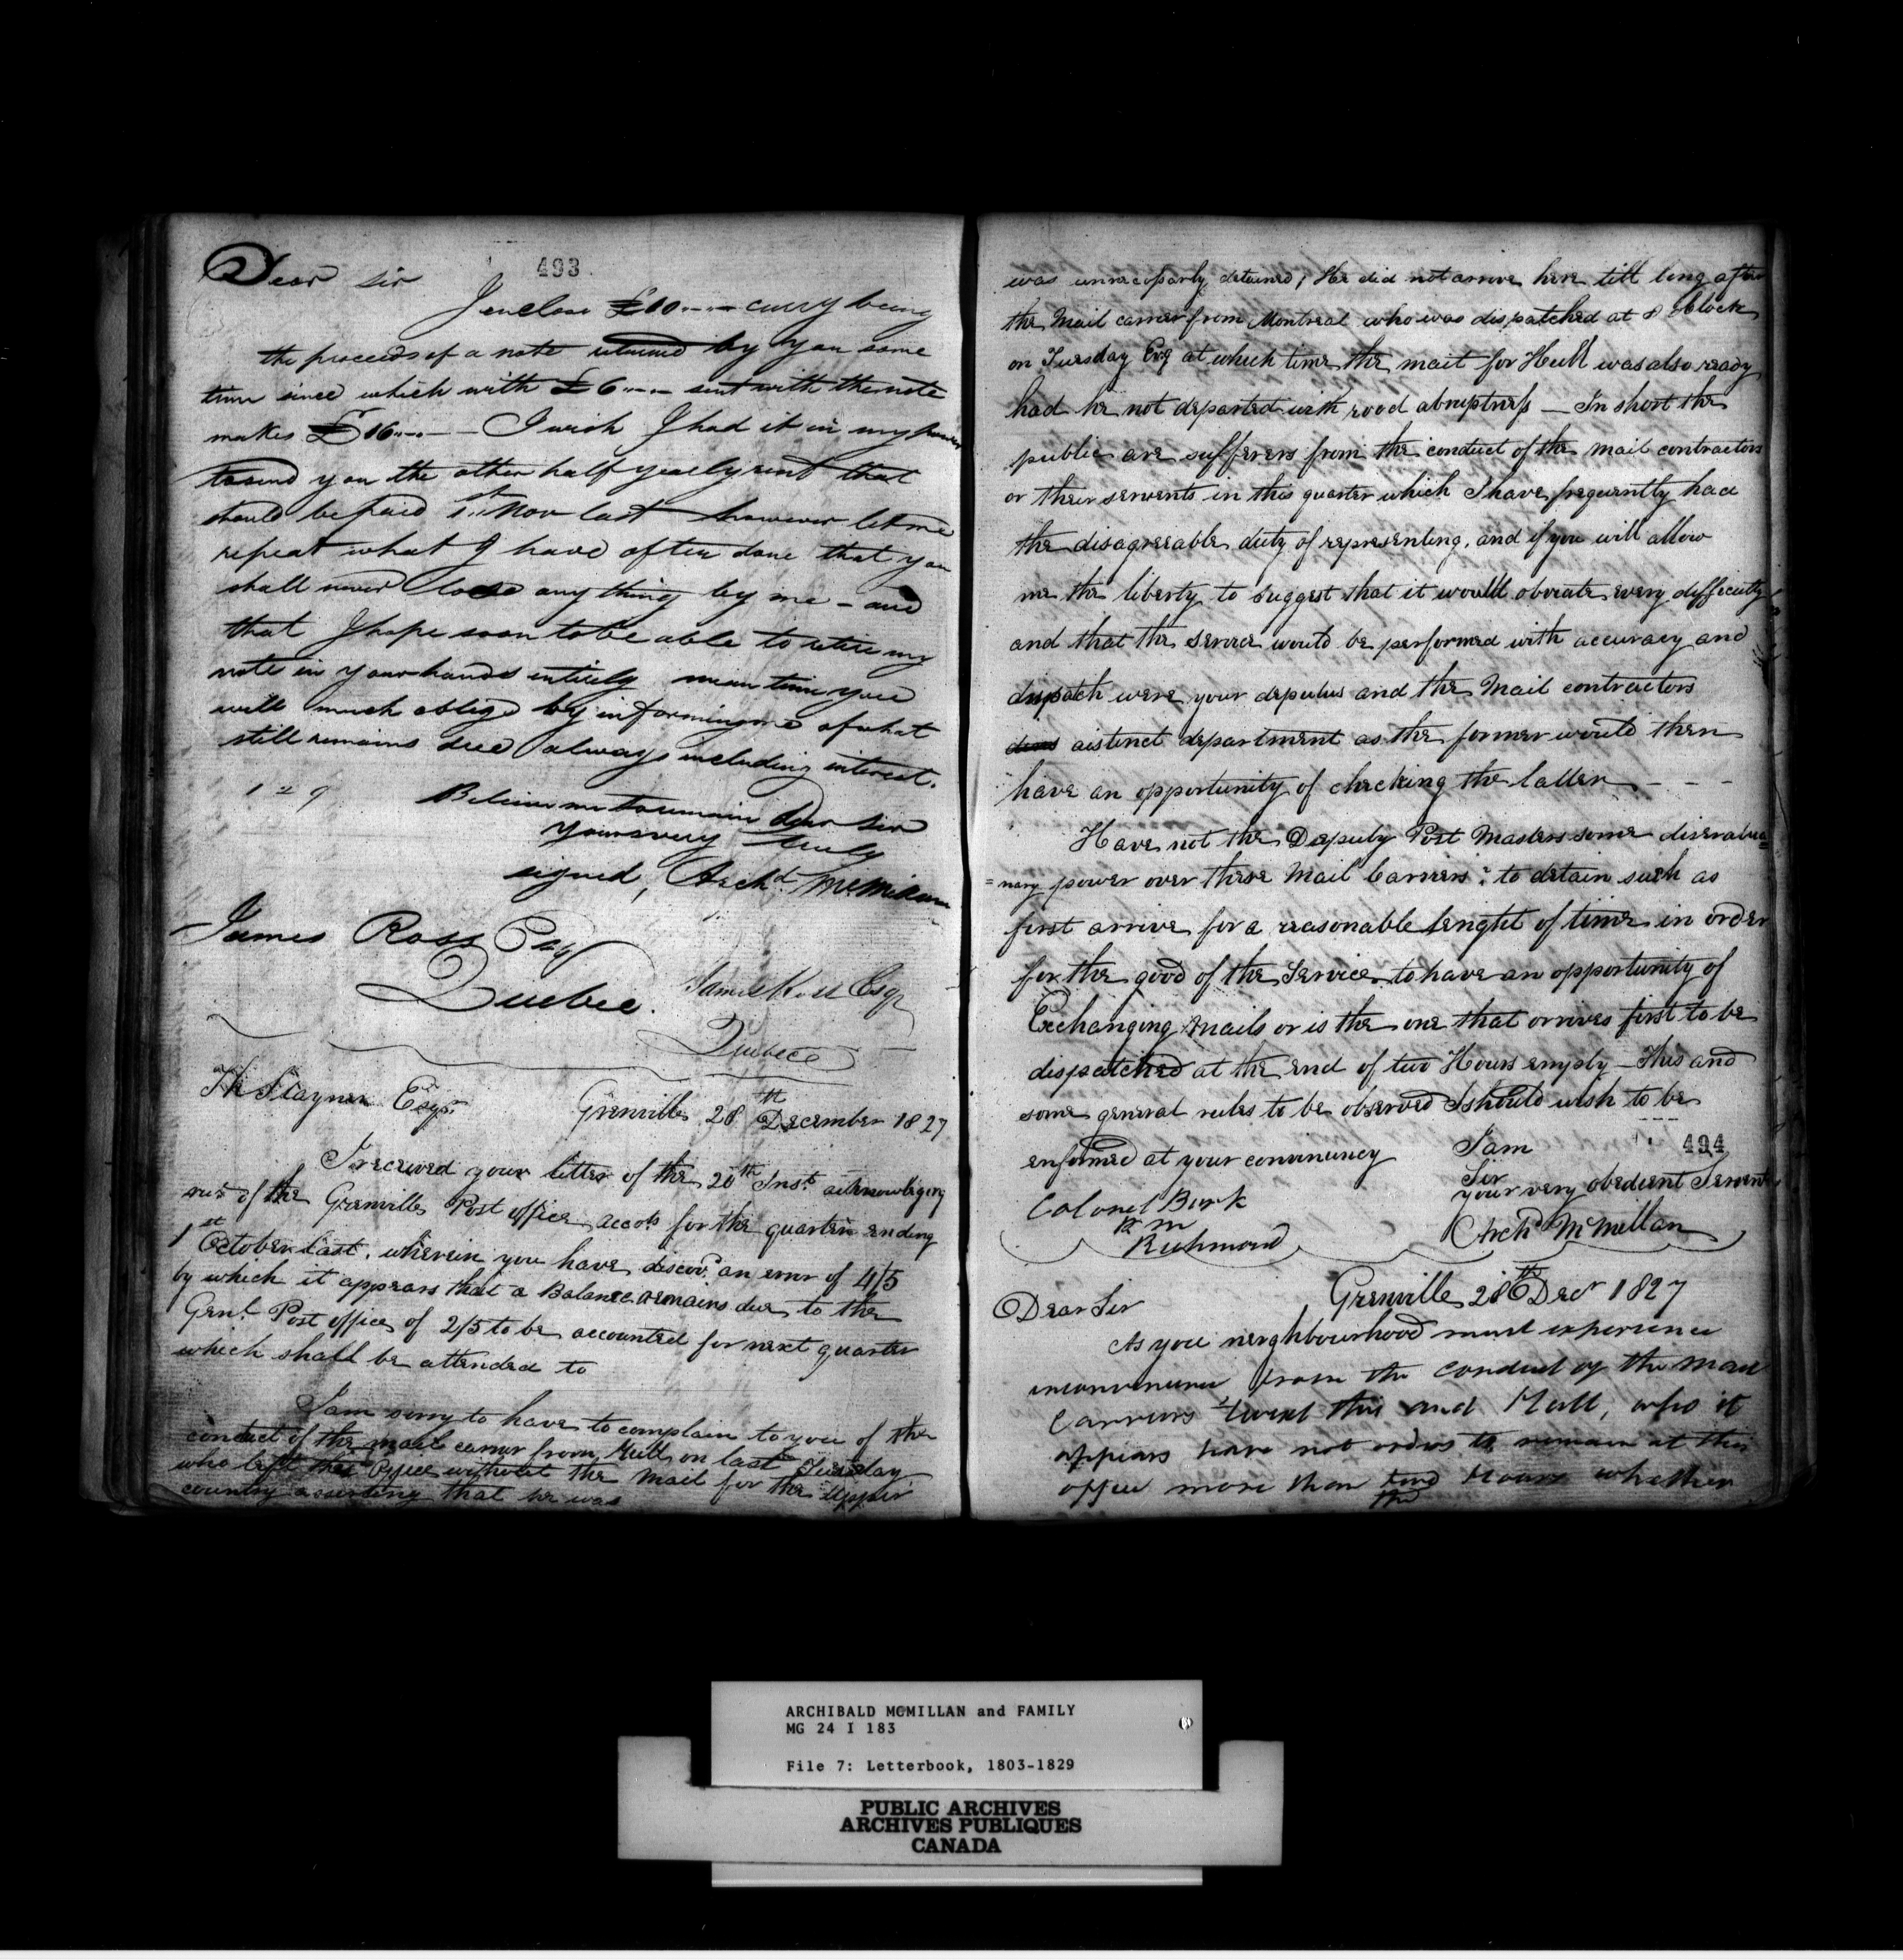 493
Dear Sir
I enclose £10..-..- curry being
the proceeds of a note returned by you some
time since which with £6..-..- sent with the note
makes £16..-..- - I wish I had it in my power
to send you the other half yearly rent that
should be paid 1st Nov last however let me
repeat what I have often done that you
shall never lose any thing by me - and
that I hope soon to be able to retire my
note in your hands entirely mean time you
will much oblige by informing me of what
still remains due always including interest.
129
Believe me to remain Dear Sir
Yours very truly
signed, Archd McMillan
James Ross Esq
Quebec.
James Ross Esqr
Quebec
Th Stayner Esqr.
Grenville 28th December 1827
I received your letter of the 20th Inst. acknowleging
rect of the Grenville Post office accots for the quarter ending
1st October last. wherein you have discovd. an error of 4/5
by which it appears that a Balance remains due to the
Genl. Post office of 2/5 to be accounted for next quarter
which shall be attended to
I am sorry to have to complain to you of the
conduct of the mail carrier from Hull on last Tuesday
who left this Office without the mail for the upper
country asserting that he was
was unnecessarly detained, He did not arrive here till long after
the Mail carrier from Montreal who was dispatched at 8 Oblock
on Tuesday Evg at which time the mail for Hull was also ready
had he not departed with rood abruptness - In short the
public are sufferers from the conduct of the mail contractors
or their servents in this quarter which I have frequently had
the disagreeable duty of representing. and if you will allow
me the liberty to suggest that it would obviate every difficulty
and that the service would be performed with accuracy and
dispatch were your deputus and the Mail contractors
aistinct department as the former would then
have an opportunity of checking the latter - - -
Have not the Deputy Post Masters some diserative=
=nary power over these Mail Carriers: to detain such as
first arrive for a reasonable lenght of time in order
for the good of the Service to have an opportunity of
Exchanging Mails or is the one that arrives first to be
dispatched at the end of two Hours empty - This and
some general rules to be observed I should wish to be
enformed at your convinuncy
I am
494
Sir
your very obedient Servent
Colonel Burk
P M
Richmond
Archd McMillan
Grenville 28th Decr 1827
Dear Sir
As you neighbourhood must experience
inconvenience from the conduct of the mail
Carriers twixt this and Hull, who it
appears have not orders to remain at this
office more than two Hours whether
the
ARCHIBALD MCMILLAN and FAMILY
MG 24 I 183
File 7: Letterbook, 1803-1829
PUBLIC ARCHIVES
ARCHIVES PUBLIQUES
CANADA